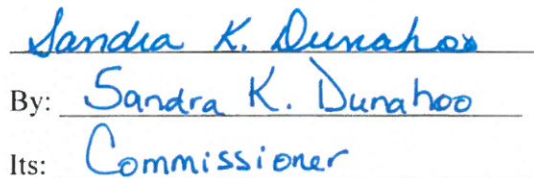 Sandra K. Dunahoo
By: Sandra K. Dunahoo
Its: Commissioner